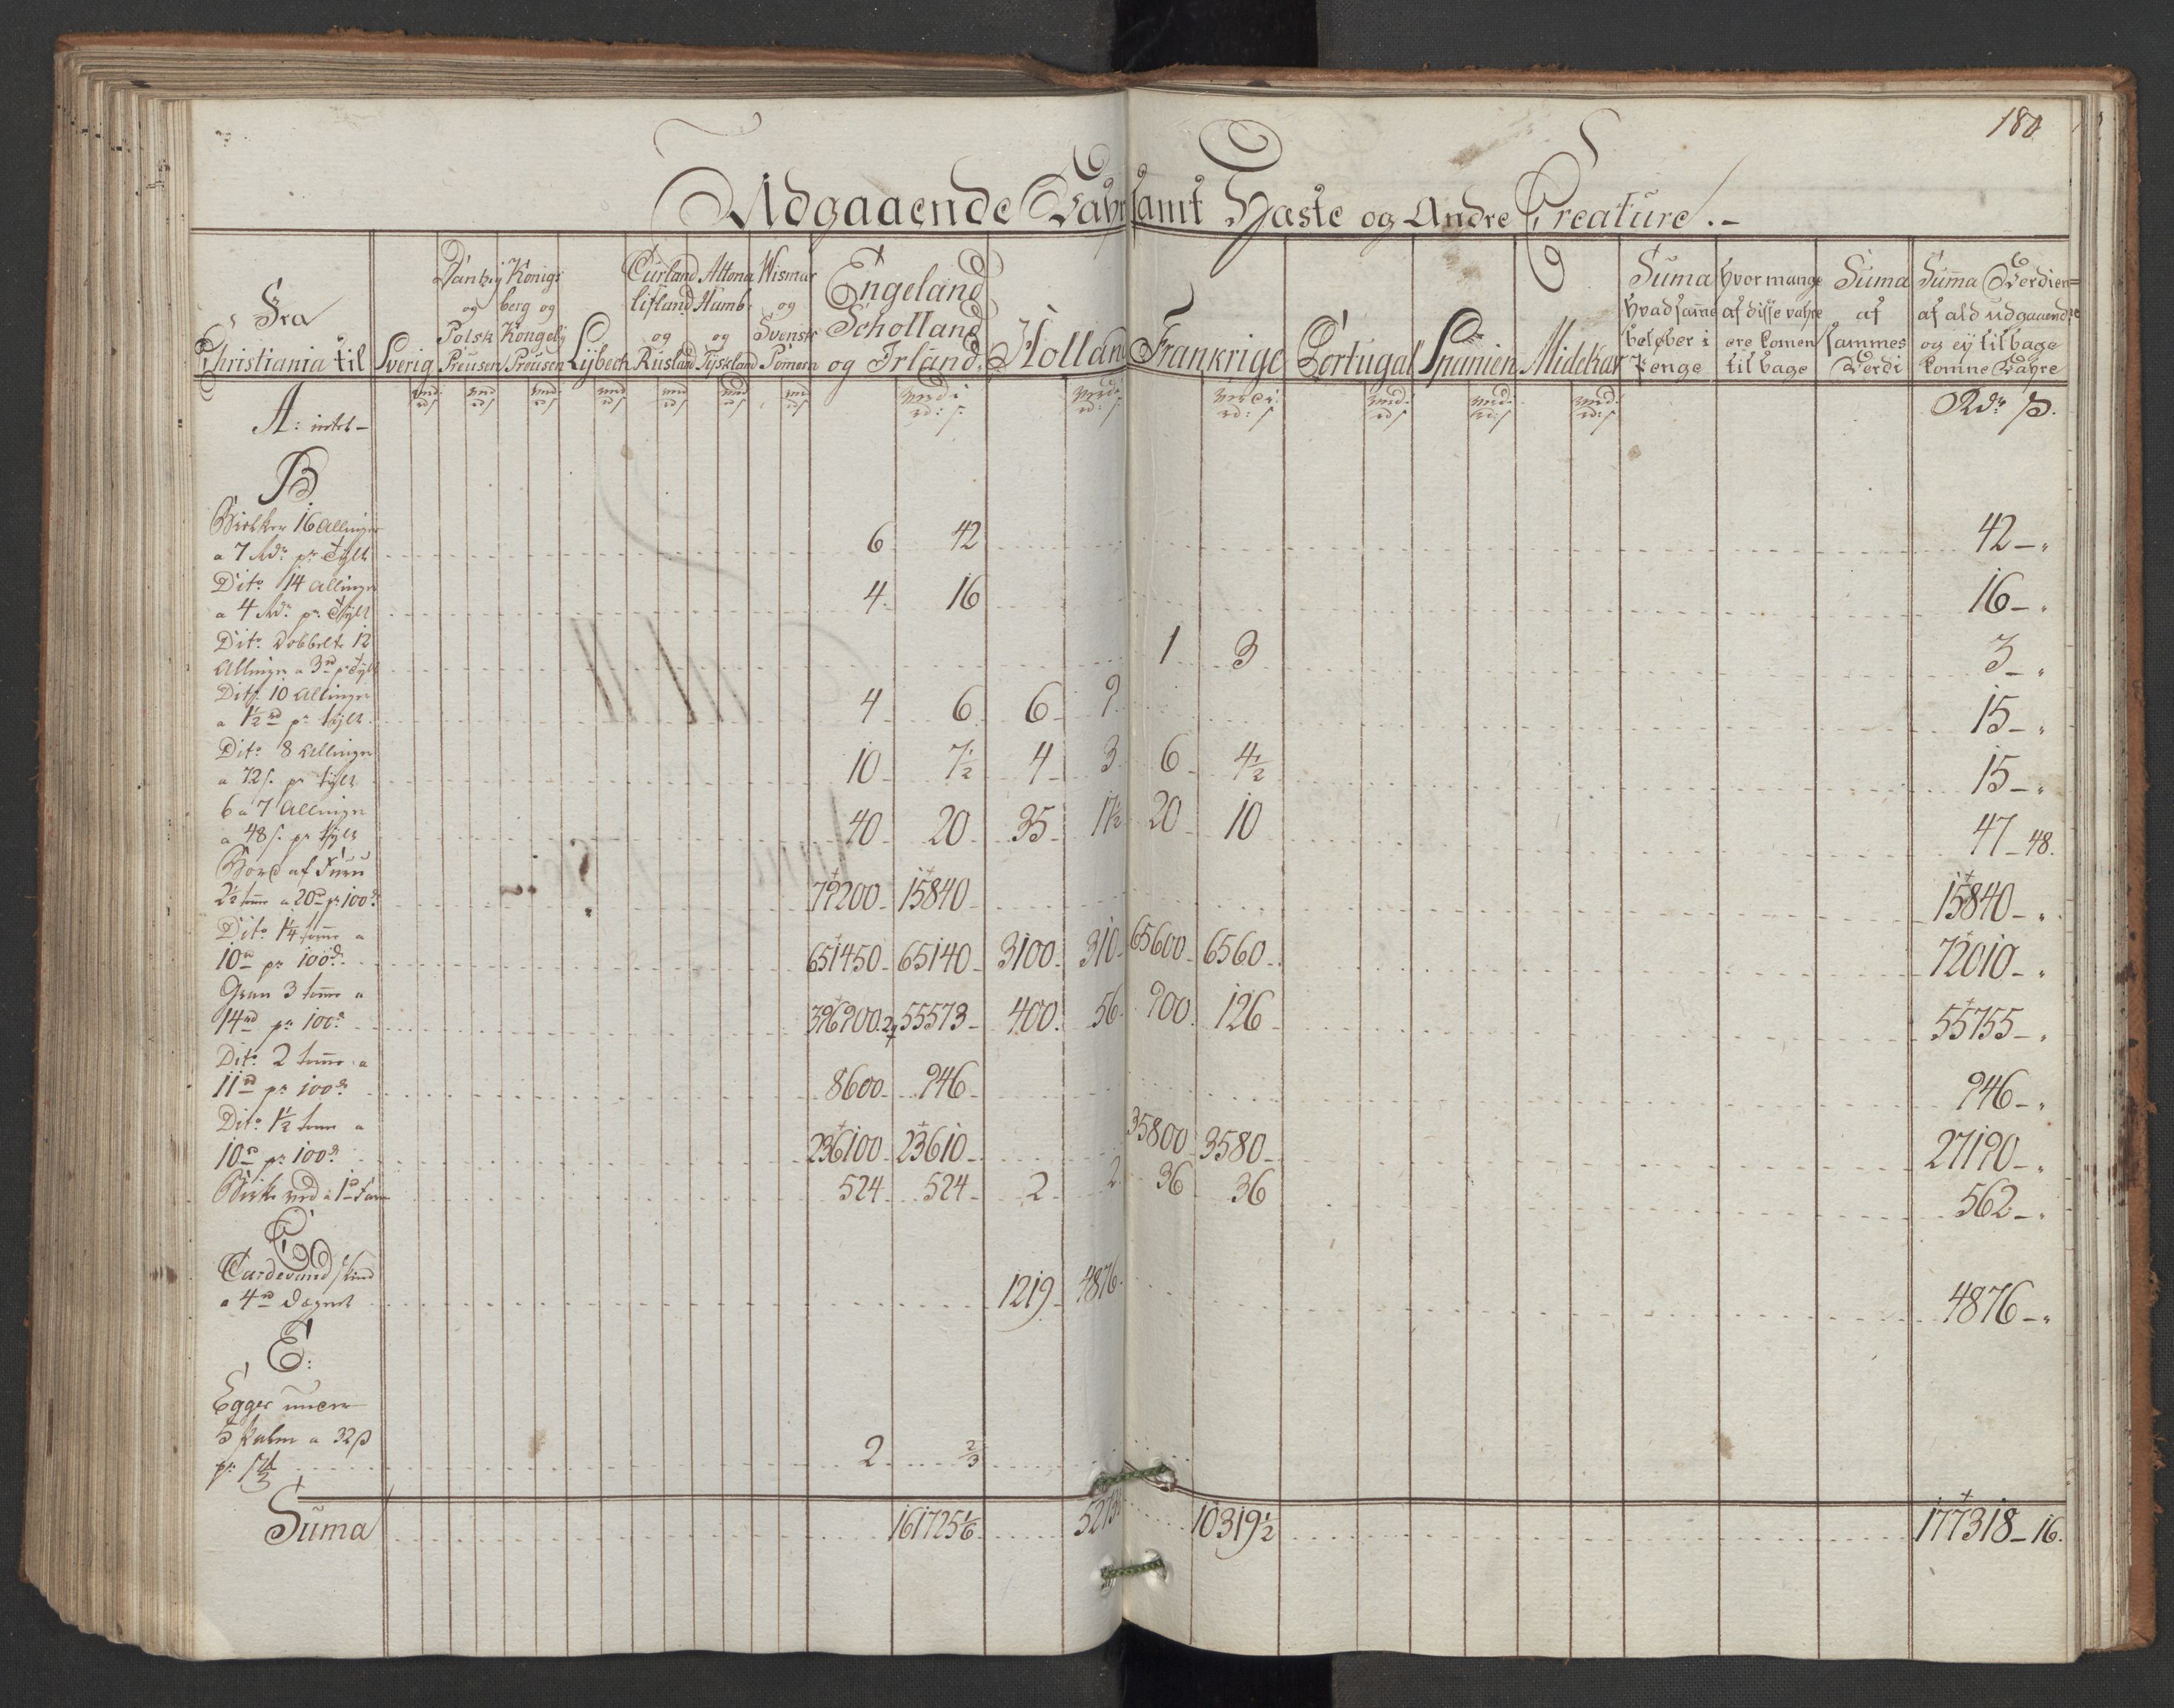 180
Udgaaende Vahre samt Hæste og Andre Creature.-
Fra Christiania til | Sverig | Dantzig og Polsk Preusen | Königsberg og Kongelig Preusen | Lÿbech | Curland Lifland og Rusland | Altona Hamb. og Tÿskland | Wismar og Svensk Pomern | Engeland Schottland og Irland | Holland | Frankrige | Portugal | Spanien | Midelhav | Suma hvad samme beløber i Penge | hvor mange af disse vahre ere komen tilbage | Suma af sammes Verdi | Suma Verdien af ald udgaaende og eÿ tilbage komne Vahre
Rdr. ß.
A: intet -
B
Birkker 16 Allninger
a 7 Rdr. pr. Tÿlt 6 42 42 - "
Dito 14 Allinger
a 4 Rdr. pr. Tÿlt 4 16 16 - "
Dito Dobbelte 12
Allinger a 3 rd pr Tÿlt 1 3 3 - "
Dito 10 Allinger
a 1½ rd pr tÿlt 4 6 6 9 15 - "
Dito 8 Allinger
a 72 s. pr tÿlt 10 7½ 4 3 6 4½ 15 - "
6 a 7 Allinger
a 48 s. pr tÿlt 40 20 35 17½ 20 10 47 - 48.
Bord af Furu
2½ tome a 20 rd pr 100d 79200 15840 15840 - "
Dito 1¼ tome a
10 rd pr 100d 651450 65140 3100 310 65600 6560 72010 - "
Gran 3 tome a
14 rd pr 100d 396900 55573 400 56 900 126 55755 - "
Dito 2 tome a
11 rd pr 100d 8600 946 946 - "
Dito 1½ tome a
10 rd pr 100d 236100 23610 35800 3580 27190 - "
Birke ved a 1 rd Favn 524 524 2 2 36 36 562 - "
C
Cardevand skind
a 4 rd Degnet 1219 4876 4876 - "
E:
Egger under
5 Palm a 32 ß
pr. 2 ⅔
Suma 161725⅙ 5273 10319½ 177318 - 16.